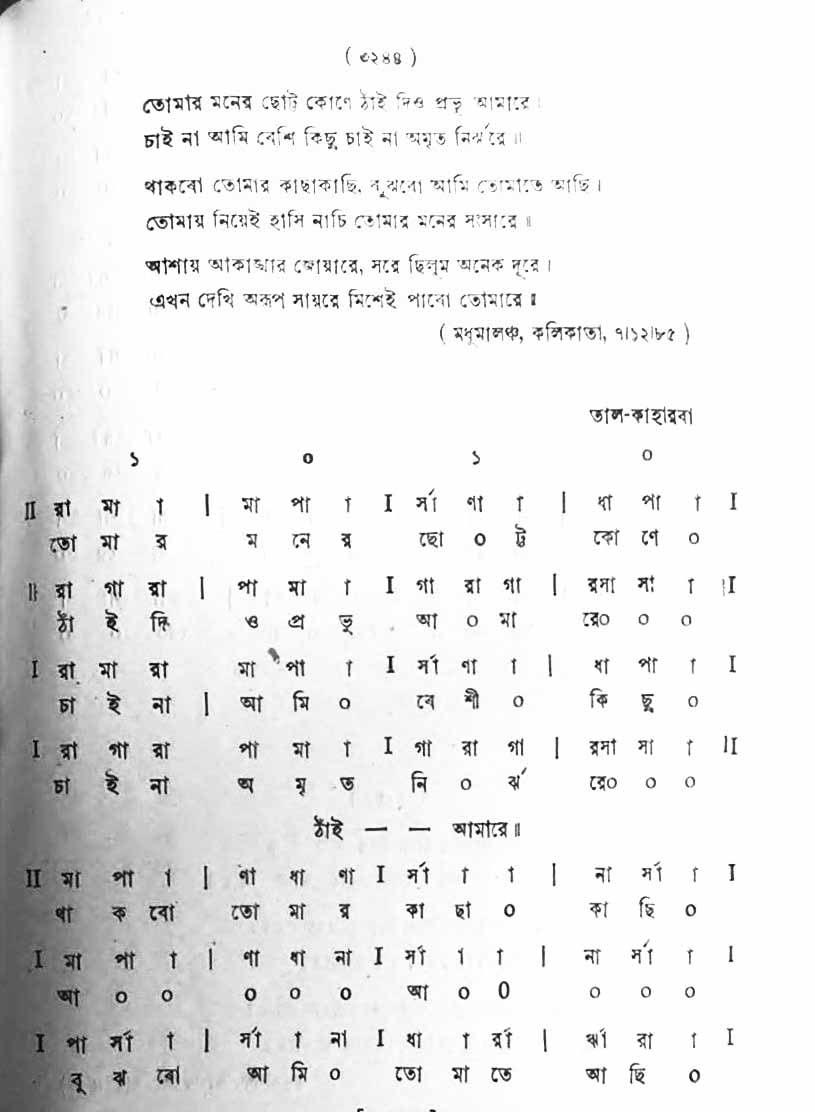 ( ৩২৪৪ )
তোমার মনের ছোট্ট কোণে ঠাঁই দিও প্রভু আমারে।
চাই না আমি বেশি কিছু চাই না অমৃত নির্ঝরে॥
থাকবো তোমার কাছাকাছি, বুঝবো আমি তোমাতে আছি।
তোমায় নিয়েই হাসি নাচি তোমার মনের সংসারে॥
আশায় আকাঙ্খার জোয়ারে, সরে ছিলুম অনেক দূরে।
এখন দেখি অরূপ সায়রে মিশেই পাবো তোমারে॥
( মধুমালঞ্চ, কলিকাতা, ৭।১২।৮৫ )
তাল-কাহারবা
১ ০ ১ ০
II রা মা া | মা পা া I র্সা ণা া | ধা পা া I
তো মা র ম নে র ছো ০ ট্ট কো ণে ০
II রা গা রা | পা মা া I গা রা গা | রসা সা া II
ঠাঁ ই দি ও প্র ভু আ ০ মা রে০ ০ ০
I রা মা রা মা পা া I র্সা ণা া | ধা পা া I
চা ই না | আ মি ০ বে শী ০ কি ছু ০
I রা গা রা পা মা া I গা রা গা | রসা সা া II
চা ই না অ মৃ ত নি ০ র্ঝ রে০ ০ ০
ঠাঁই — — আমারে॥
II মা পা া | ণা ধা ণা I র্সা া া | না র্সা া I
থা ক বো তো মা র কা ছা ০ কা ছি ০
I মা পা া | ণা ধা না I র্সা া া | না র্সা া I
আ ০ ০ ০ ০ ০ আ ০ 0 ০ ০ ০
I পা র্সা া | র্সা া না I ধা া র্রা | র্ঋা রা া I
বু ঝ বো আ মি ০ তো মা তে আ ছি ০